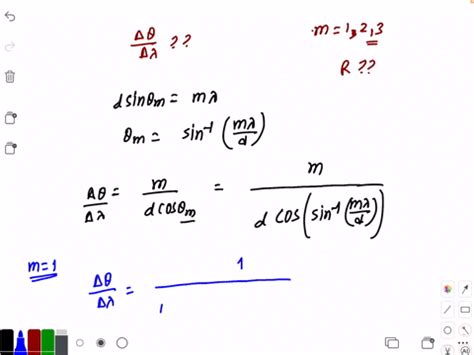 Δθ/Δλ ??
m = 1, 2, 3
R ??
d sinθm = mλ
θm = sin⁻¹ (mλ/d)
Δθ/Δλ = m/(d cosθm) = m/(d cos(sin⁻¹(mλ/d)))
m=1
Δθ/Δλ = 1/